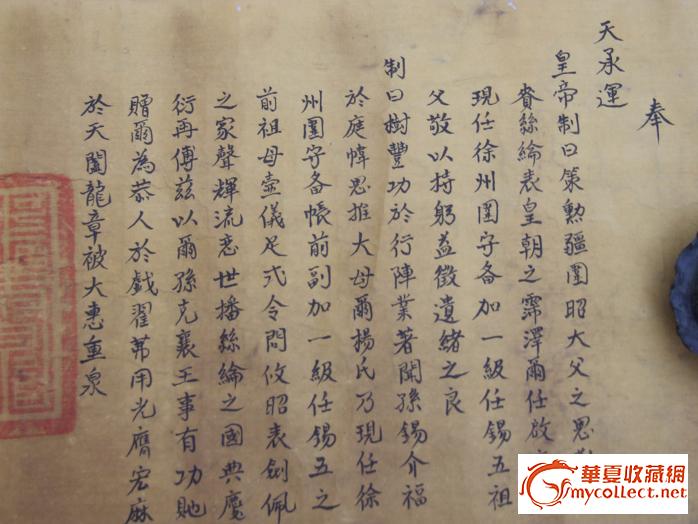 奉
天承運
皇帝制曰策勲疆圉昭大父之恩
賚絲綸表皇朝之霈澤爾任啟
現任徐州圉守备加一級任錫五祖
父敬以持躬益徵遺緒之良
制曰樹豐功於行陣業著聞孫錫介福
於庭幃思推大母爾楊氏乃現任徐
州圉守备帳前副加一級任錫五之
前祖母壼儀足式令問攸昭表劍佩
之家聲輝流世播絲綸之國典慶
衍再傅茲以爾孫克襄王事有功貤
贈爾為恭人於戲翟茀用光膺宏麻
於天龍章被大惠重泉
華夏收藏網
mycollect.net